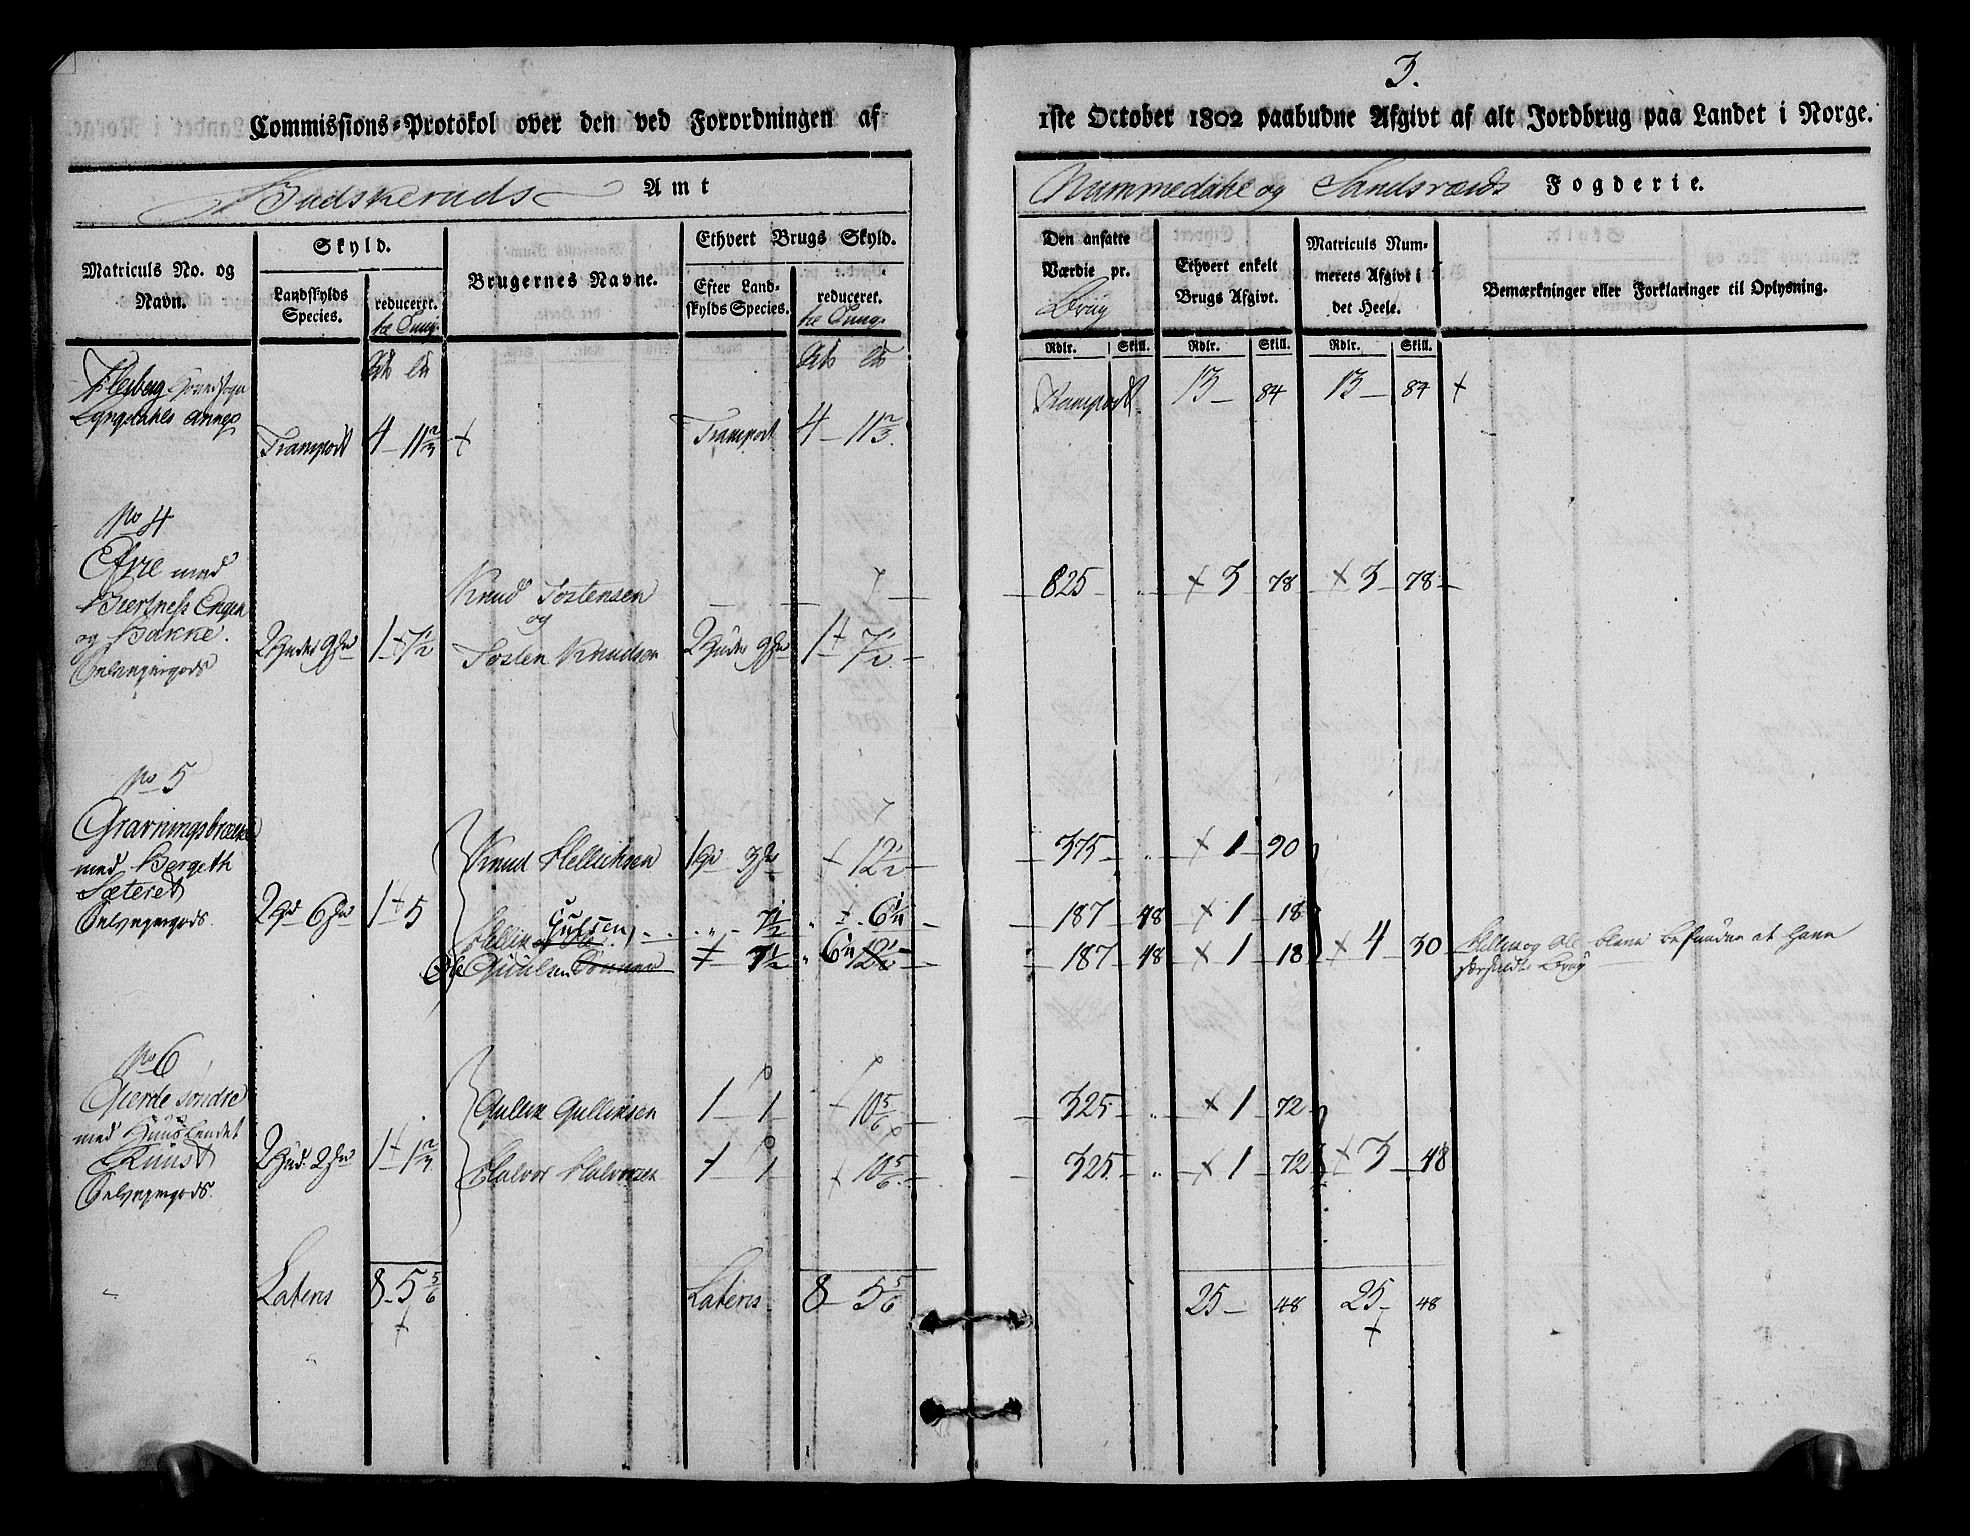 3.
Commissions-Protokol over den ved Forordningen af 1ste October 1802 paabudne Afgivt af alt Jordbrug paa Landet i Norge.
Budskeruds Amt Nummedahl og Sandsværds Fogderie.
Matriculs No. og Navn.
Skyld.
Landskylds Species.
reduceret.
Brugernes Navne.
Ethvert Brugs Skyld.
Efter Landskylds Species.
reduceret.
Den ansatte Værdie pr. Brug
Ethvert enkelt Brugs Afgivt.
Matriculs Nummerets Afgivt i det Heele.
Bemærkninger eller Forklaringer til Oplysning.
Rdlr. Skill. Rdlr. Skill. Rdlr. Skill.
Flesberg Hovedsogn
Lyngdahls Annex
Transport 4 - 11 2/3 + Transport 4 - 11 2/3 Transport 13 - 84 13 - 84 +
No 4
Efvre med
Biertness Engen
og Bakke.
Selveyergods
2 Huder 9 1 + 7 1/2
Knud Tostensen
og
Tosten Knudsen
2 Huder 9 1 + 7 1/2
825 " + 3 - 78 + 3 - 78
No 5
Gravningsbræke
med Bergeth
Sæteret
Selveyergods.
2 Hd 6 1 + 5
Knud Hellichsen 1 3 + 12 1/2 375 " + 1 - 90
Hellik Gulsen 7 1/2 " + 6 1/4 187 - 48 + 1 - 18
Ole Guulsen 7 1/2 " 6 1/4 187 - 48 + 1 - 18 + 4 - 30
Hellik og Ole bleve befunden at have
særskildt Brug
No 6
Gierde søndre
med Huuslendet
Ruust
Selveyergods.
2 Hud. 2 1 + 1 2/3
Gullik Gulliksen 1 - 1 + 10 5/6 325 " + 1 - 72
Halvor Halvorsen 1 - 1 + 10 5/6 325 " + 1 - 72 + 3 - 48
Lateris 8 - 5 5/6 Lateris 8 - 5 5/6 25 - 48 25 - 48
+ +